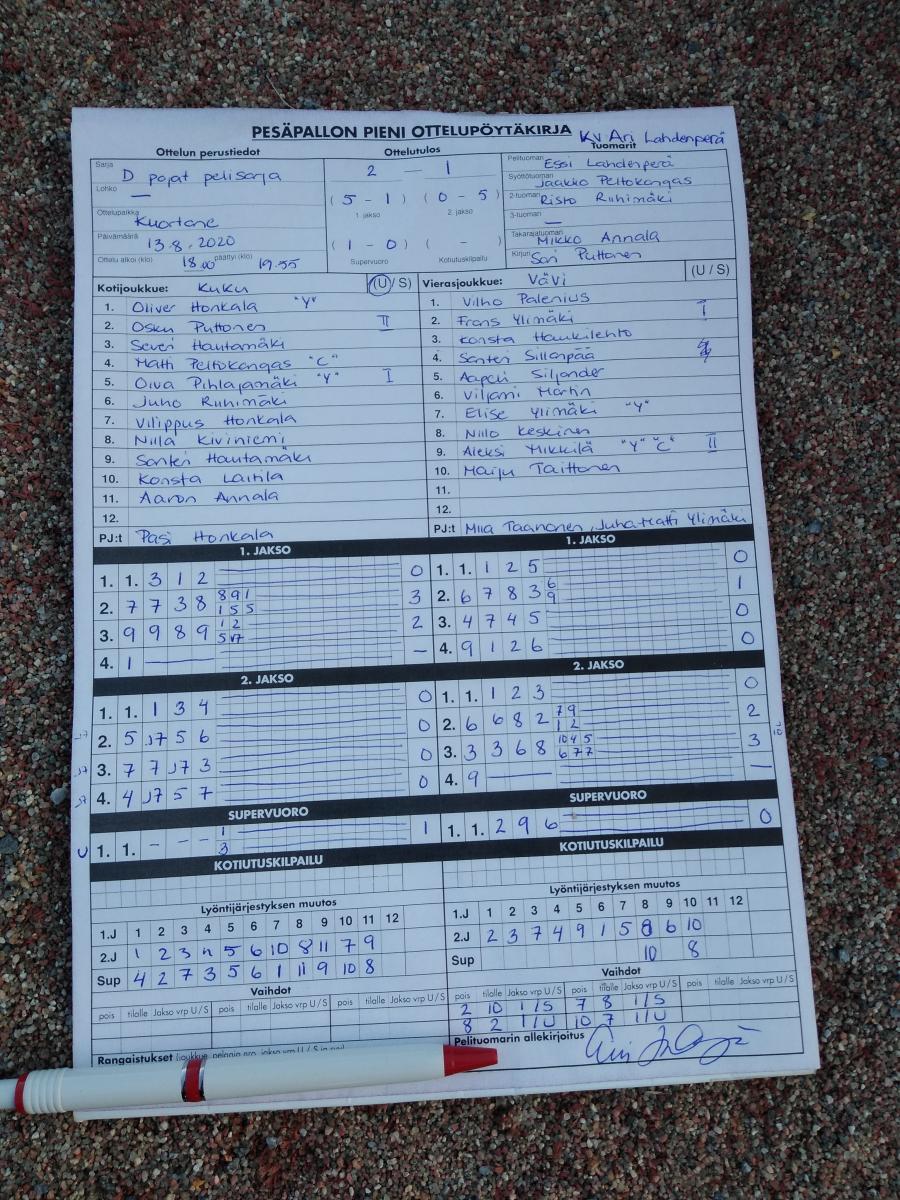 PESÄPALLON PIENI OTTELUPÖYTÄKIRJA
KV Ari Lahdenperä
Ottelun perustiedot Ottelutulos Tuomarit
Sarja D pojat pelisarja
Lohko —
Ottelupaikka Kuortane
Päivämäärä 13.8.2020
Ottelu alkoi (klo) 18.00 päättyi (klo) 19.55
2 — 1
(5 - 1) (0 - 5)
1. jakso 2. jakso
(1 - 0) ( - )
Supervuoro Kotiutuskilpailu
Pelituoman Essi Lahdenperä
Syöttötuoman Jaakko Peltokangas
2-tuoman Risto Riihimäki
3-tuoman —
Takarajatuoman Mikko Annala
Kirjuri Sari Puttonen
Kotijoukkue: KuKu (U / S)
1. Oliver Honkala "Y"
2. Osku Puttonen II
3. Severi Hautamäki
4. Matti Peltokangas "C"
5. Oiva Pihlajamäki "Y" I
6. Juho Riihimäki
7. Vilippus Honkala
8. Niila Kiviniemi
9. Santeri Hautamäki
10. Konsta Laitila
11. Aaron Annala
12.
PJ:t Pasi Honkala
Vierasjoukkue: Vävi (U / S)
1. Vilho Palenius
2. Frans Ylimäki I
3. Konsta Haukilehto
4. Santeri Sillanpää
5. Aapeli Siljander
6. Viljami Martin
7. Elise Ylimäki "Y"
8. Niilo Keskinen
9. Aleksi Mikkilä "Y" "C" II
10. Maiju Taittonen
11.
12.
PJ:t Miia Taanonen, Juha-Matti Ylimäki
1. JAKSO
1. 1. 3 1 2 0
2. 7 7 3 8 8 9 1 3
1 5 5
3. 9 9 8 9 1 2 2
5 J7
4. 1 — —
1. JAKSO
1. 1. 1 2 5 0
2. 6 7 8 3 6 1
9
3. 4 7 4 5 0
4. 9 1 2 6 0
2. JAKSO
1. 1. 1 3 4 0
2. 5 J7 5 6 0
3. 7 7 J7 3 0
4. 4 J7 5 7 0
2. JAKSO
1. 1. 1 2 3 0
2. 6 6 8 2 7 9 2
1 2
3. 3 3 6 8 10 4 5 3
6 7 7
4. 9 — —
SUPERVUORO
U 1. 1. - - - 1 1
3
SUPERVUORO
1. 1. 2 9 6 0
KOTIUTUSKILPAILU
KOTIUTUSKILPAILU
Lyöntijärjestyksen muutos
1.J 1 2 3 4 5 6 7 8 9 10 11 12
2.J 1 2 3 4 5 6 10 8 11 7 9
Sup 4 2 7 3 5 6 1 11 9 10 8
Lyöntijärjestyksen muutos
1.J 1 2 3 4 5 6 7 8 9 10 11 12
2.J 2 3 7 4 9 1 5 8 6 10
Sup 10 8
Vaihdot
pois tilalle Jakso vrp U / S pois tilalle Jakso vrp U / S pois tilalle Jakso vrp U / S
Vaihdot
pois tilalle Jakso vrp U / S pois tilalle Jakso vrp U / S pois tilalle Jakso vrp U / S
2 10 1/S 7 8 1/S
8 2 1/U 10 7 1/U
Rangaistukset
Pelituomarin allekirjoitus